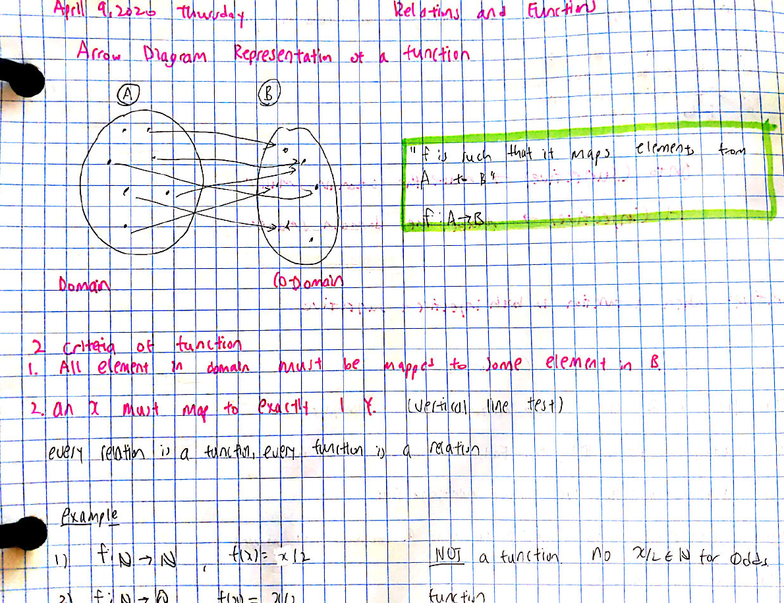 April 9, 2020 Thursday Relations and Function
Arrow Diagram Representation of a function
A B
"f is such that it maps element from
A to B"
f: A→B
Domain Co-Domain
2 criteria of function
1. All element in domain must be mapped to some element in B.
2. an x must map to exactly 1 Y. (vertical line test)
every relation is a function, every function is a relation
Example
1) f: N → N , f(x) = x/2 NOT a function no x/2 ∈ N for odds
2) f: N → Q f(x) = x/2 function